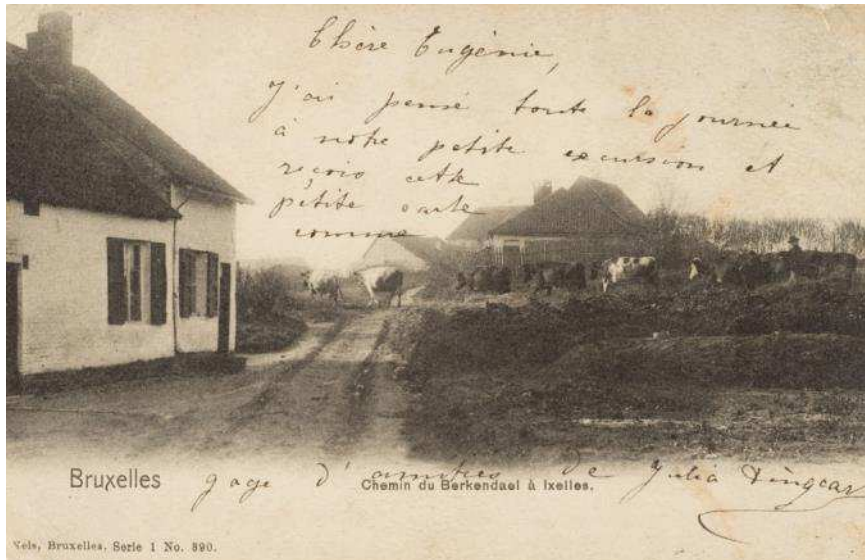 Chère Eugénie,
J'ai pensé toute la journée
à notre petite excursion et
reçois cette
petite carte
comme
Bruxelles
gage d'amitiés de Julia
Chemin du Berkendael à Ixelles.
Nels, Bruxelles, Serie 1 No. 890.